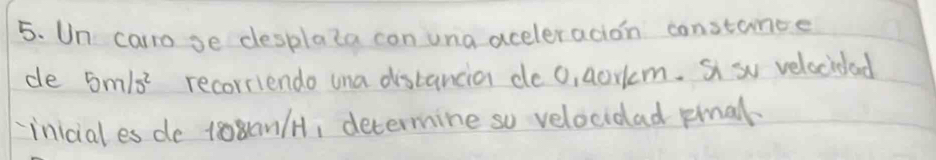 5. Un carro se desplaza con una aceleración constante
de 5m/s² recorriendo una distancia de 0,40km. Si su velocidad
inicial es de 108km/H, determine su velocidad final.